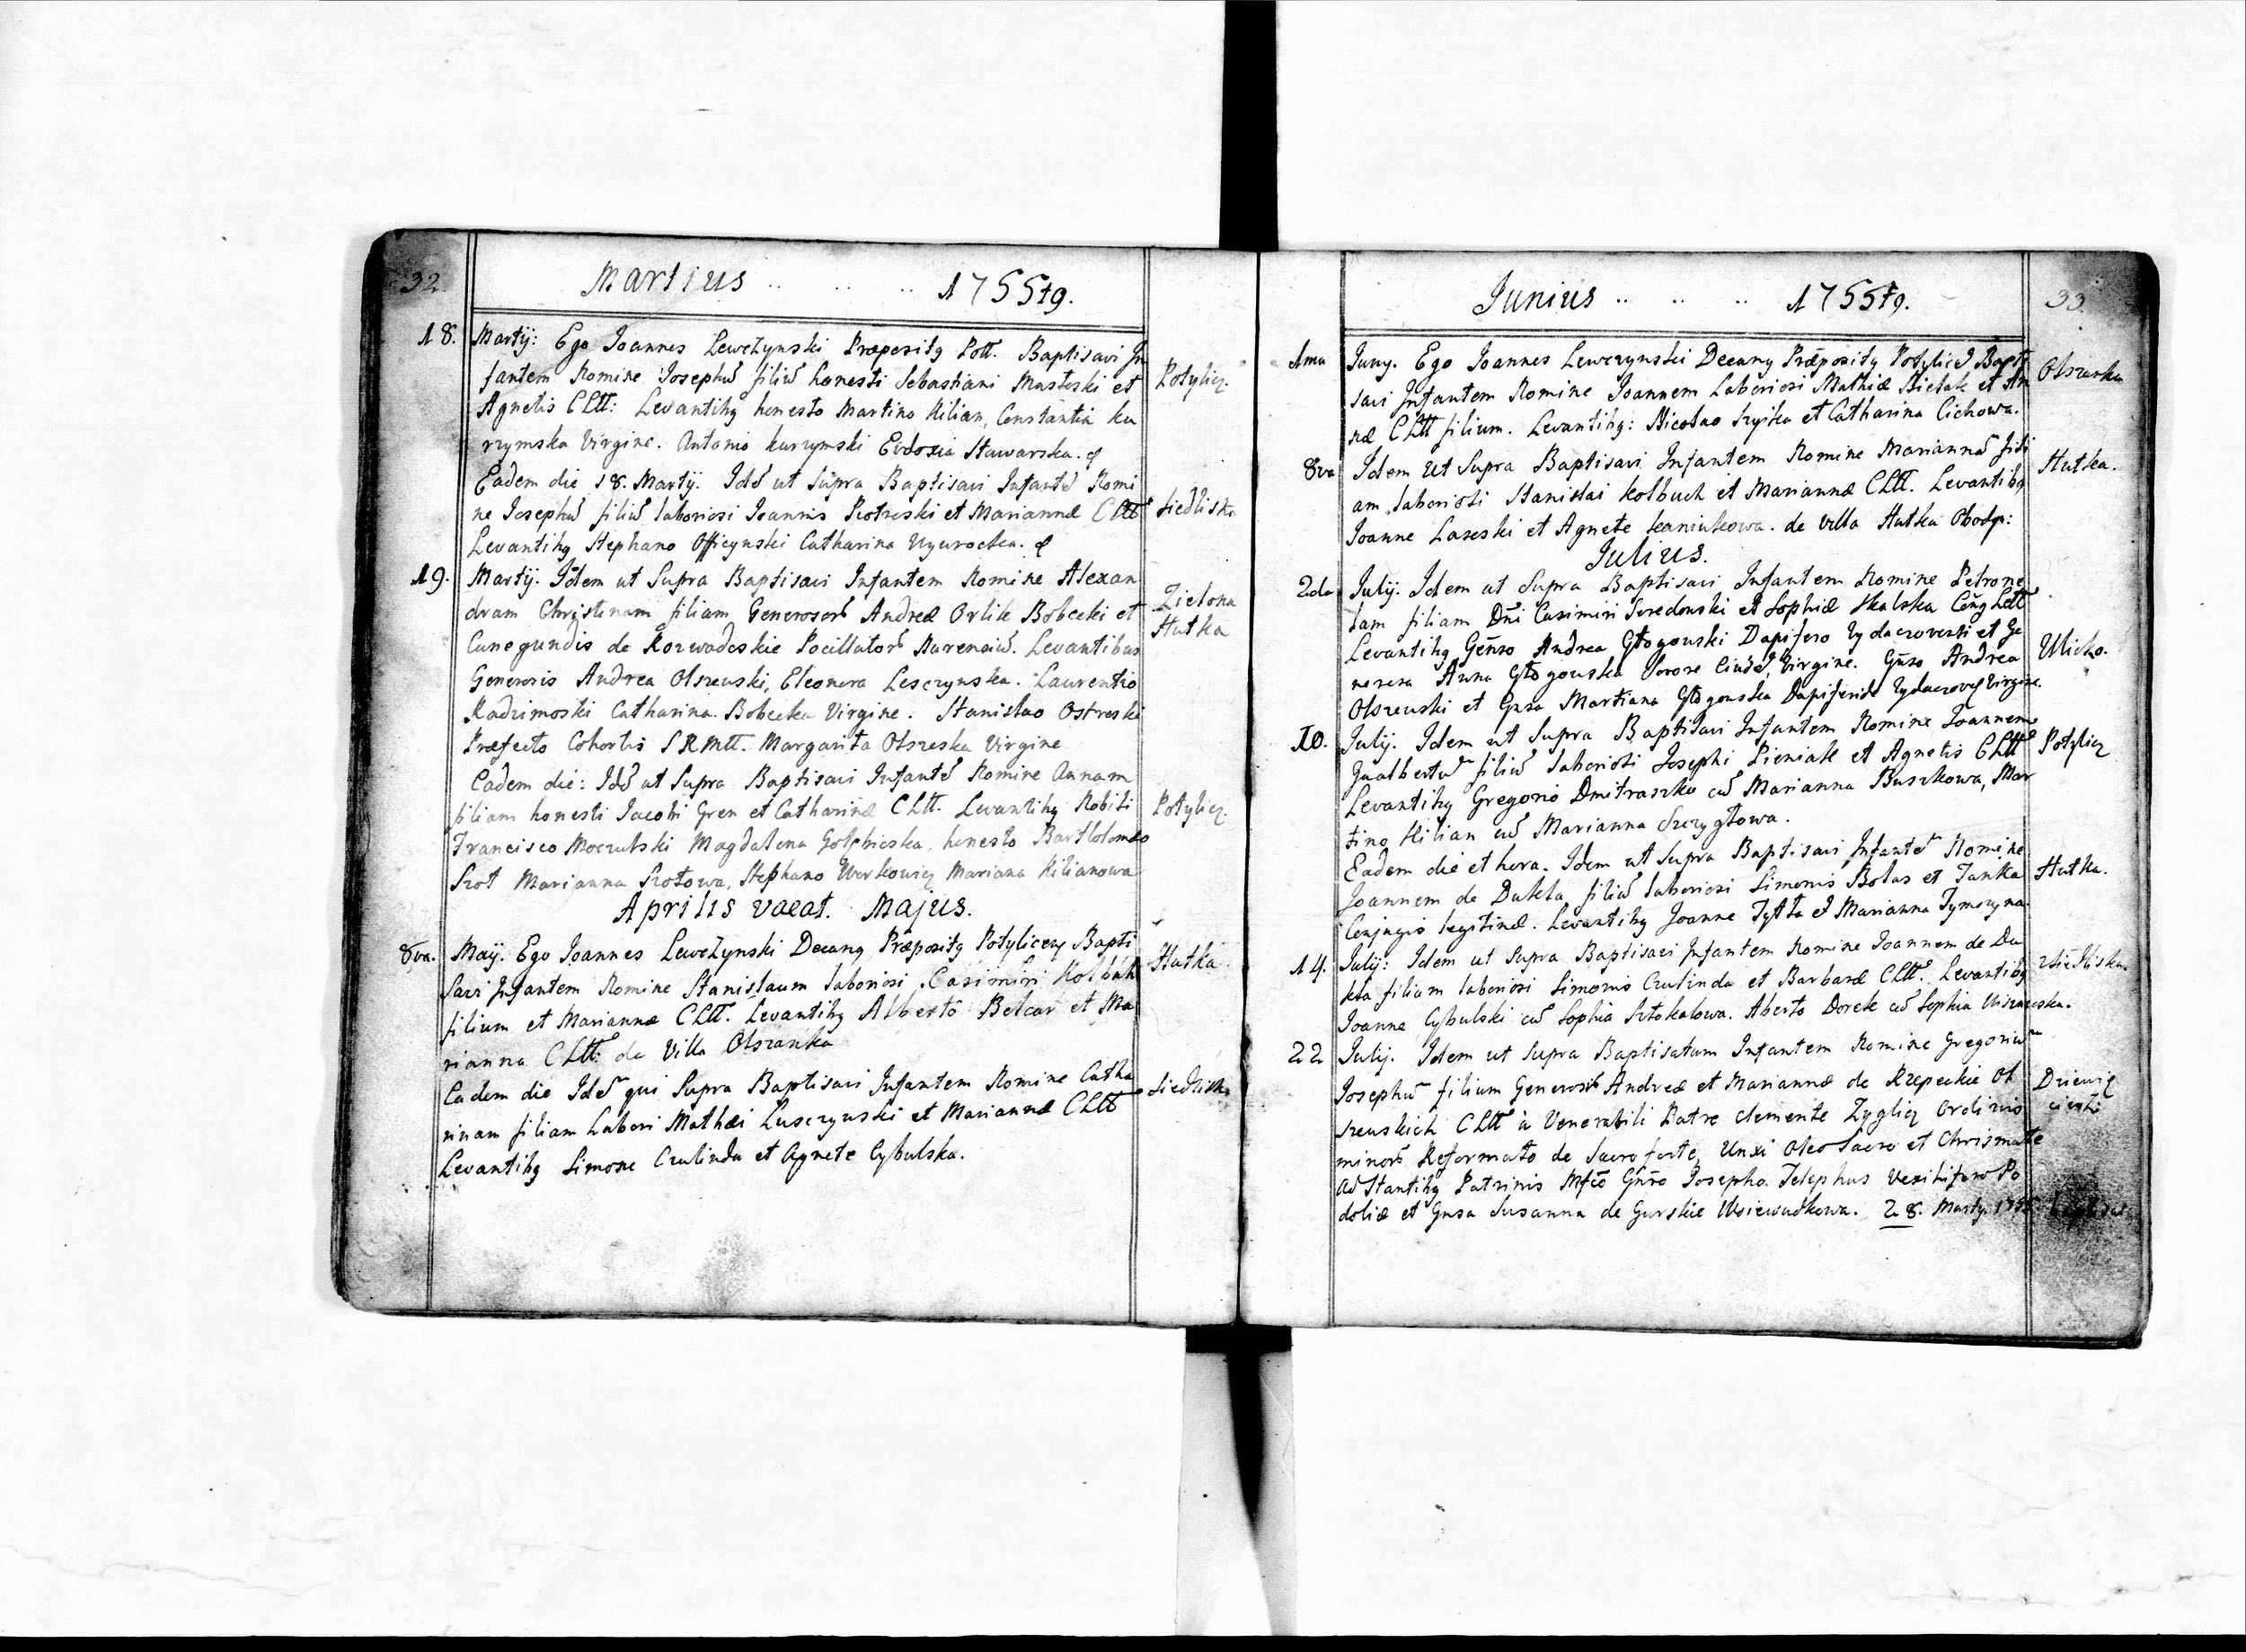 32 Martius .. .. .. 1755tg.
18. Martij: Ego Joannes Lewczynski Præpositg Pott. Baptisavi In
fantem Nomine Josephū filiū honesti Sebastiani Masteski et Potylicz.
Agnetis CLtt: Levantibg honesto Martino Kilian, Constantia ku
rzymska Virgine. Antonio kurzymski Evdoxia Stawarska.
Eadem die 18. Martij. Idē ut supra Baptisavi Infantē Nomi
ne Josephū filiū laboriosi Joannis Piotreski et Mariannæ CLtt Siedliska
Levantibg Stephano Officynski Catharina
19. Martij. Idem ut Supra Baptisavi Infantem Nomine Alexan
dram Christinam filiam Generosorū Andreæ Orlik Bobecki et Zielona
Cunegundis de Rozwadoskie Pocillatorū Levantibus Hutka
Generosis Andrea Olszeuski, Eleonora Lesczynska. Laurentio
Radzimoski Catharina Bobecka Virgine. Stanislao Ostreski
Præfecto Cohortis SRMtt. Margarita Olszeska Virgine
Eadem die: Idē ut Supra Baptisavi Infantē Nomine Annam
filiam honesti Jacobi Gren et Catharinæ CLtt. Levantibg Nobili Potylicz.
Francisco Moczulski Magdalena honesto Bartholomeo
Szot Marianna Szotowa, Stephano Werkowicz Mariana Kilianowa
Aprilis vacat. Majus.
8va. Maij. Ego Joannes Lewczynski Decang Præpositg Potylicen Bapti
savi Infantem Nomine Stanislaum laboriosi Casimiri Kolbuch Hutka
filium et Mariannæ CLtt. Levantibg Alberto Betcar et Ma
rianna CLtt: de Villa Olszanka
Eadem die Idē qui Supra Baptisavi Infantem Nomine Catha
rinam filiam Labori Mathæi Lusczynski et Mariannæ CLtt Siedliska
Levantibg Simone Czulinda et Agnete Cybulska.
Junius .. .. .. 1755tg. 33.
1ma Juny. Ego Joannes Lewczynski Decang Præpositg Potylic Bapti
savi Infantem Nomine Joannem Laboriosi Mathiæ Bielak et An Olszanka
næ CLtt filium. Levantibg: Nicolao et Catharina Cichowa.
8va Idem ut Supra Baptisavi Infantem Nomine Mariannā fili
am laboriosi Stanislai Kolbuch et Mariannæ CLtt. Levantibg Hutka.
Joanne Laseski et Agnete kaniukowa. de Villa Hutka
Julius.
2da July. Idem ut Supra Baptisavi Infantem Nomine Petrone
lam filiam Dñi Casimiri et Sophiæ Skalska Coñg Ltt
Levantibg Geñso Andrea Głogouski Dapifero et Ge Ulicko.
nerosa Anna Głogouska Sorore Virgine. Gñso Andrea
Olszeuski et Gnsa Martiana Głogouska Virgine.
10. July. Idem ut Supra Baptisavi Infantem Nomine Joannem
Gualbertū filiū laboriosi Josephi Pieniak et Agnetis CLtt Potylicz
Levantibg Gregorio Dmitraszko cū Marianna Buszkowa, Mar
tino Kilian cū Marianna Szczygłowa.
Eadem die et hora. Idem ut Supra Baptisavi Infantē Nomine
Joannem de Dukla filiū laboriosi Simonis Bolas et Janka Hutka.
Conjugis legitimæ. Levantibg Joanne Tytła et Marianna Tymczyna
14. July: Idem ut Supra Baptisavi Infantem Nomine Joannem de Du
kla filium laboriosi Simonis Czulinda et Barbaræ CLtt. Levantibg Siedliska.
Joanne Cybulski cū Sophia Sztokalowa. Aberto Dorek cū Sophia
22 July. Idem ut Supra Baptisatum Infantem Nomine Gregoriū
Josephū filium Generosorū Andreæ et Mariannæ de Rzepeckie Ol Dziewię
szeuskich CLtt à Venerabili Patre Clemente Zyglicz Ordinis cierz
minorū Reformato de Sacro fonte, Unxi Oleo Sacro et Chrismate
adstantibg Patrinis Mfco Gñso Josepho Telephus Vexilifero Po
doliæ et Gnsa Susanna de Gurskie Woiewudkowa. 28. Marty. 1755